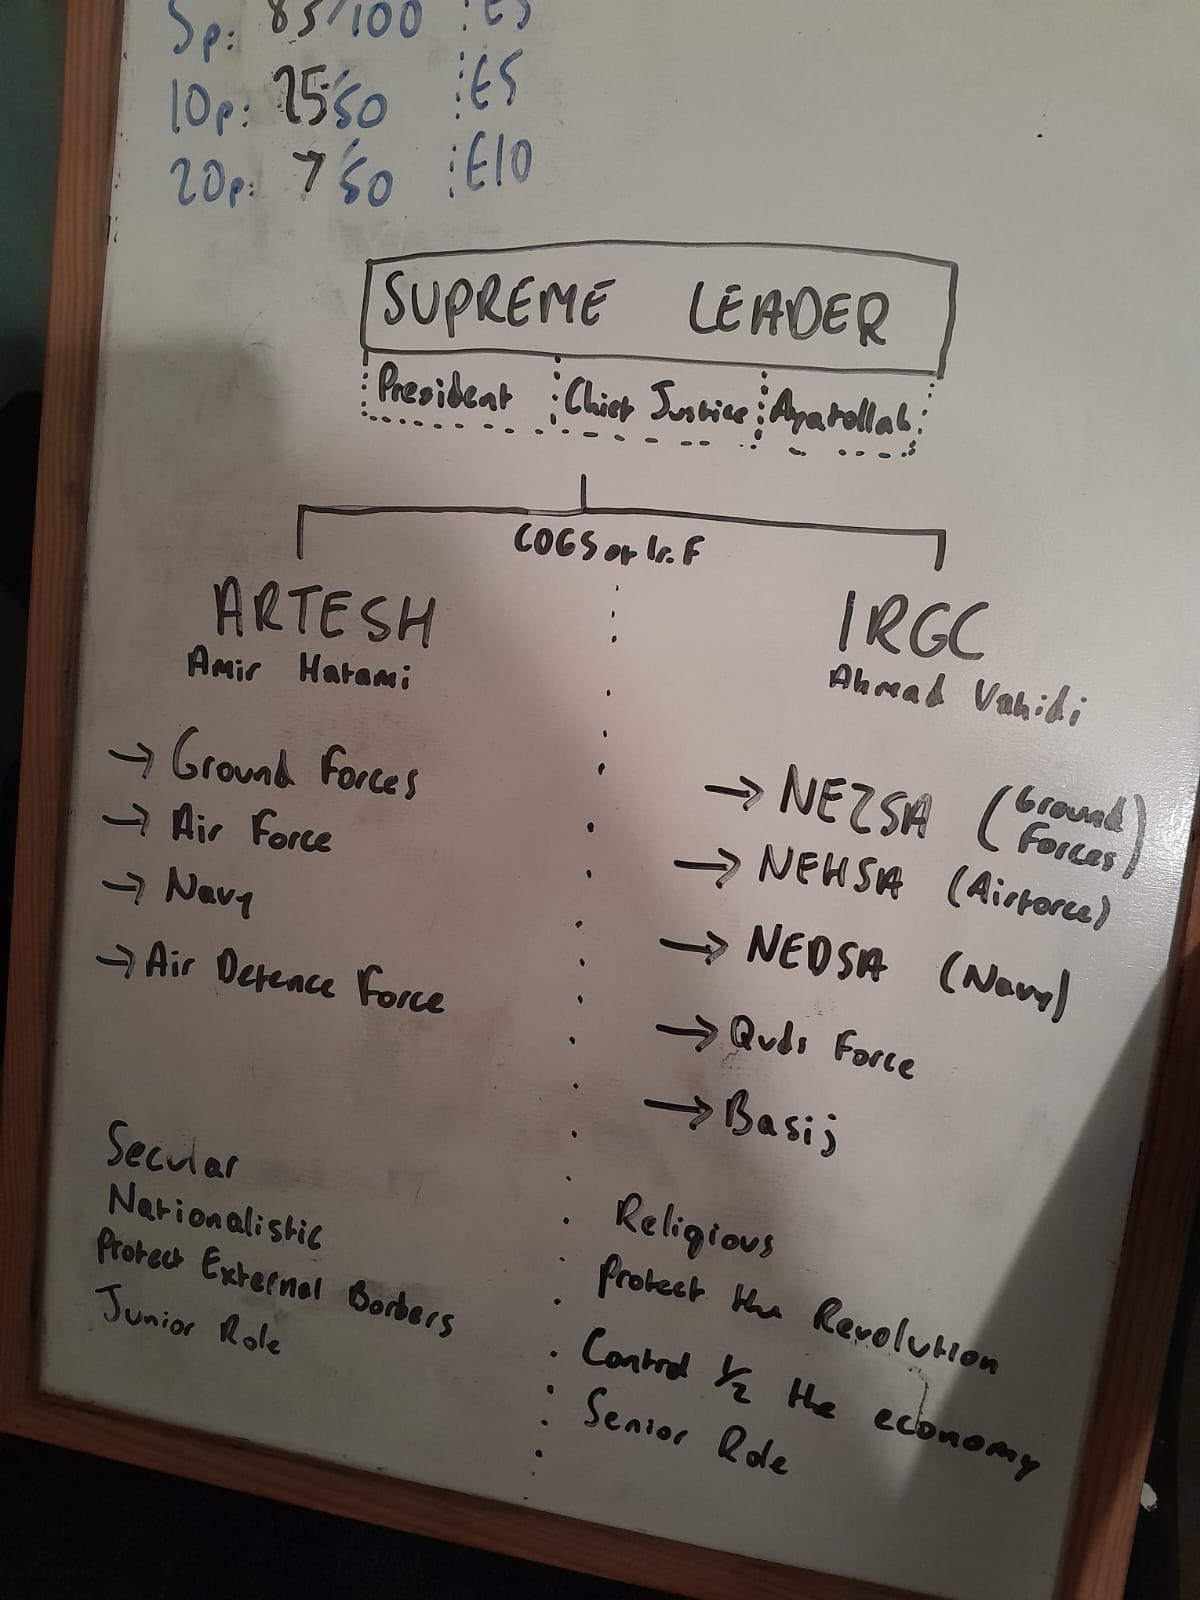 5p: 85/100 : £5
10p: 25/50 : £5
20p: 7/50 : £10
SUPREME LEADER
President : Chief Justice : Ayatollah
COGS of Ir. F
ARTESH
Amir Hatami
→ Ground Forces
→ Air Force
→ Navy
→ Air Defence Force
Secular
Nationalistic
Protect External Borders
Junior Role
IRGC
Ahmad Vahidi
→ NEZSA (Ground Forces)
→ NEHSA (Airforce)
→ NEDSA (Navy)
→ Quds Force
→ Basij
Religious
Protect the Revolution
Control 1/2 the economy
Senior Role